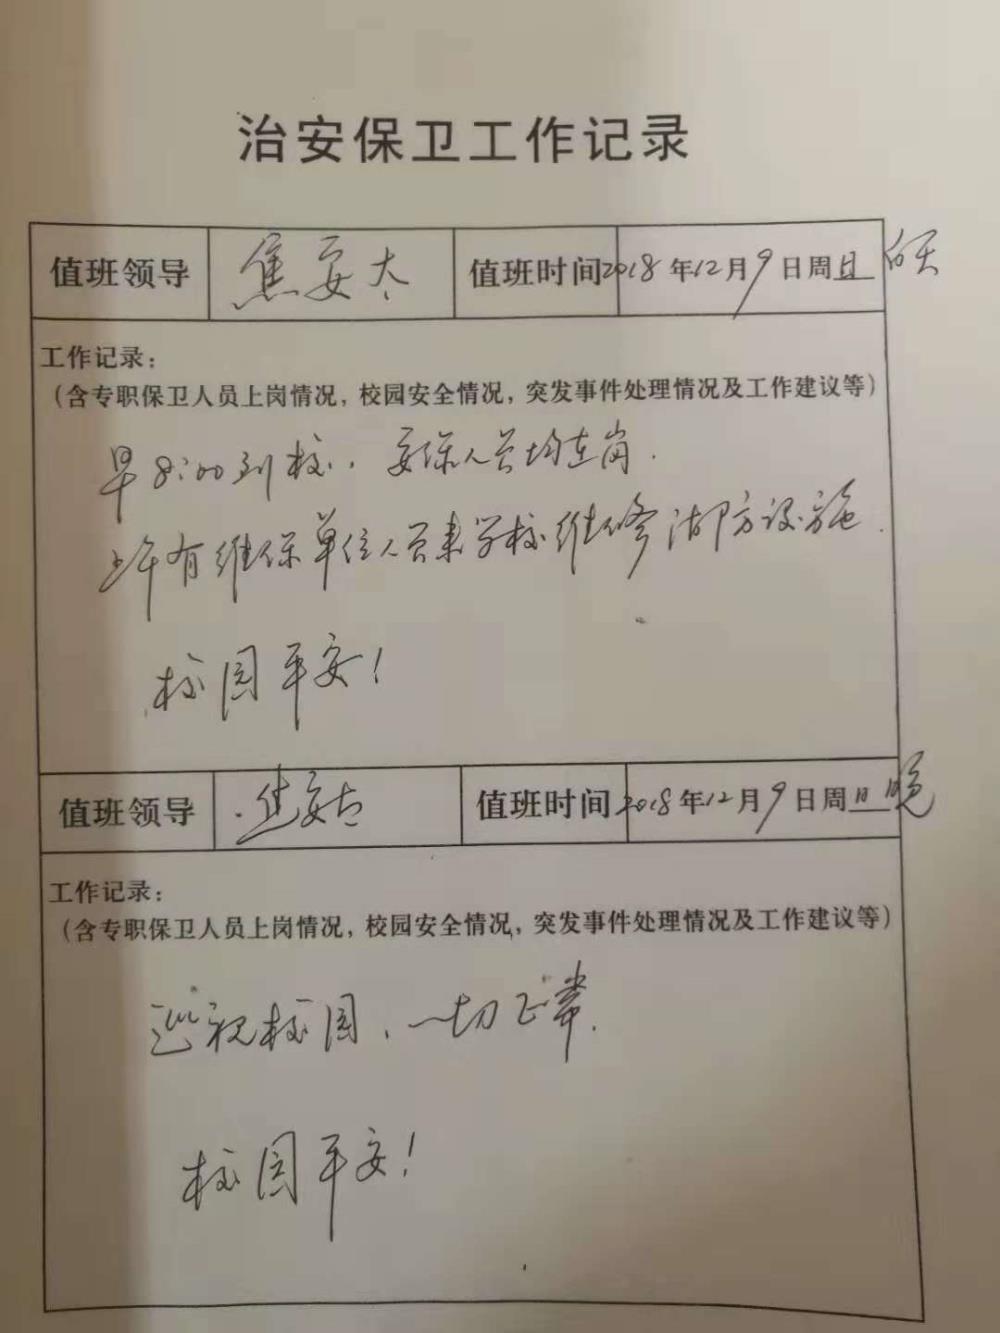 治安保卫工作记录
值班领导 焦安太 值班时间 2018年12月9日周日 白天
工作记录：
（含专职保卫人员上岗情况，校园安全情况，突发事件处理情况及工作建议等）
早8:00到校，安保人员均在岗.
上午有维保单位人员来学校维修消防设施.
校园平安！
值班领导 焦安太 值班时间 2018年12月9日周日 晚
工作记录：
（含专职保卫人员上岗情况，校园安全情况，突发事件处理情况及工作建议等）
巡视校园，一切正常.
校园平安！